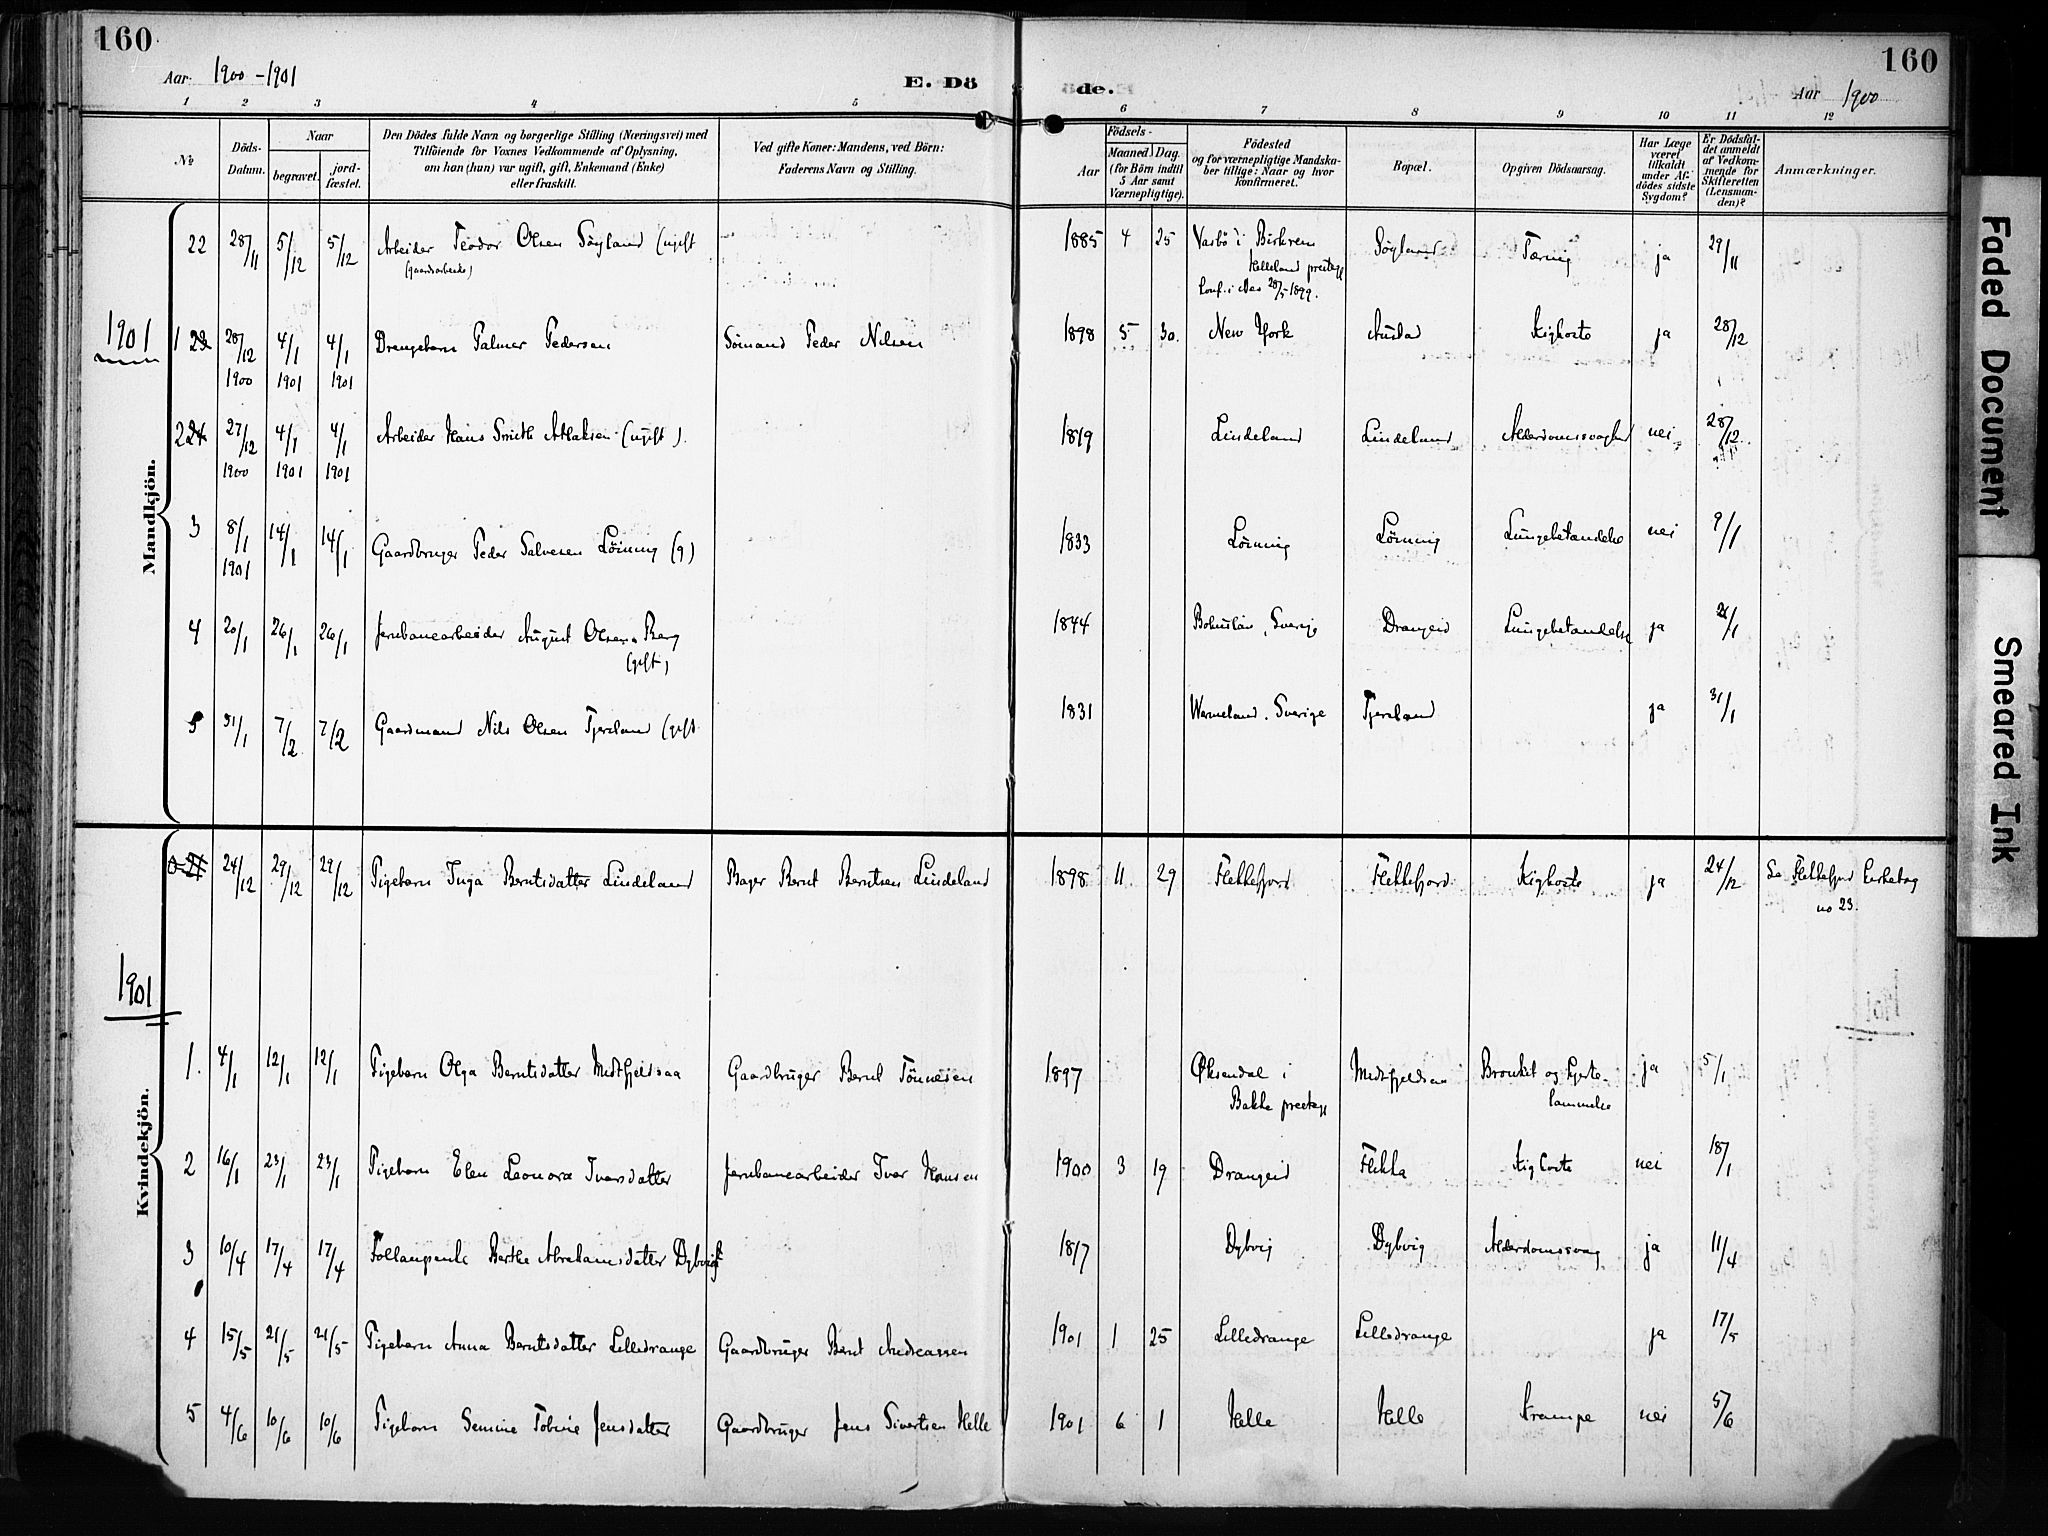 160
160
Aar 1900-1901
E. Dö
de.
Aar 1900
1 2 3 4 5 6 7 8 9 10 11 12
No
Döds-Datum.
Naar
begravet.
jord-fæstet.
Den Dödes fulde Navn og borgerlige Stilling (Næringsvei) med
Tilföiende for Voxnes Vedkommende af Oplysning,
om han (hun) var ugift, gift, Enkemand (Enke)
eller fraskilt.
Ved gifte Koner: Mandens, ved Börn:
Faderens Navn og Stilling.
Födsels-
Aar
Maaned. Dag.
(for Börn indtil
5 Aar samt
Værnepligtige).
Födested
og for værnepligtige Mandska-
ber tillige: Naar og hvor
konfirmeret.
Bopæl.
Opgiven Dödsaarsag.
Har Læge
været
tilkaldt
under Af-
dödes sidste
Sygdom?
Er Dödsfal-
det anmeldt
af Vedkom-
mende for
Skifteretten
(Lensman-
den)?
Anmærkninger.
Mandkjön.
22 28/11 5/12 5/12 Arbeider Teodor Olsen Söyland (ugift 1885 4 25 i Birkrem Söyland Tæring ja 29/11
(gaardsarbeide) Helleland prestegj
Conf. i Nes 28/5 1899.
1901
1 23 28/12 4/1 4/1 Drengebarn Palmer Pedersen Sömand Peder Nilsen 1898 5 30. New York Austad Kighoste ja 28/12
1900 1901 1901
2 24 27/12 4/1 4/1 Arbeider Hans Smith Atlaksen (ugift). 1819 Lindeland Lindeland Alderdomssvaghed nei 28/12
1900 1901 1901
3 8/1 14/1 14/1 Gaardbruger Peder Salvesen Löining (g) 1833 Löining Löining Lungebetændelse nei 9/1
1901
4 20/1 26/1 26/1 Jernbanearbeider August Olsen Berg 1844 Bohuslän, Sverige Drangeid Lungebetændelse ja 21/1
(gift)
5 31/1 7/2 7/2 Gaardmand Nils Olsen Tjersland (gift 1831 Wermeland, Sverige Tjersland ja 31/1
Kvindekjön.
24/12 29/12 29/12 Pigebarn Inga Berntsdatter Lindeland Bager Bernt Berntsen Lindeland 1898 11 29 Flekkefjord Flekkefjord Kighoste ja 24/12 Se Flekkefjord kirkebog
no 23.
1901
1. 4/1 12/1 12/1 Pigebarn Olga Berntsdatter Midtfjeldsaa Gaardbruger Bernt Tönnesen 1897 Øksendal i Midtfjeldsaa Bronkit og Hjerte- ja 5/1
Bakke prestegj lammelse
2 16/1 23/1 23/1 Pigebarn Elen Leonora Ivarsdatter Jernbanearbeider Ivar Hansen 1900 3 19 Drangeid Flikka Kighoste nei 18/1
3 10/4 17/4 17/4 Berthe Abrahamsdatter Dybvig 1817 Dybvig Dybvig Alderdomssvag ja 11/4
4 15/5 21/5 21/5 Pigebarn Anna Berntsdatter Lilledrange Gaardbruger Bernt Andreassen 1901 1 25 Lilledrange Lilledrange ja 17/5
5 4/6 10/6 10/6 Pigebarn Semine Tobine Jensdatter Gaardbruger Jens Sivertsen Helle 1901 6 1 Helle Helle Krampe nei 5/6
Faded Document
Smeared Ink